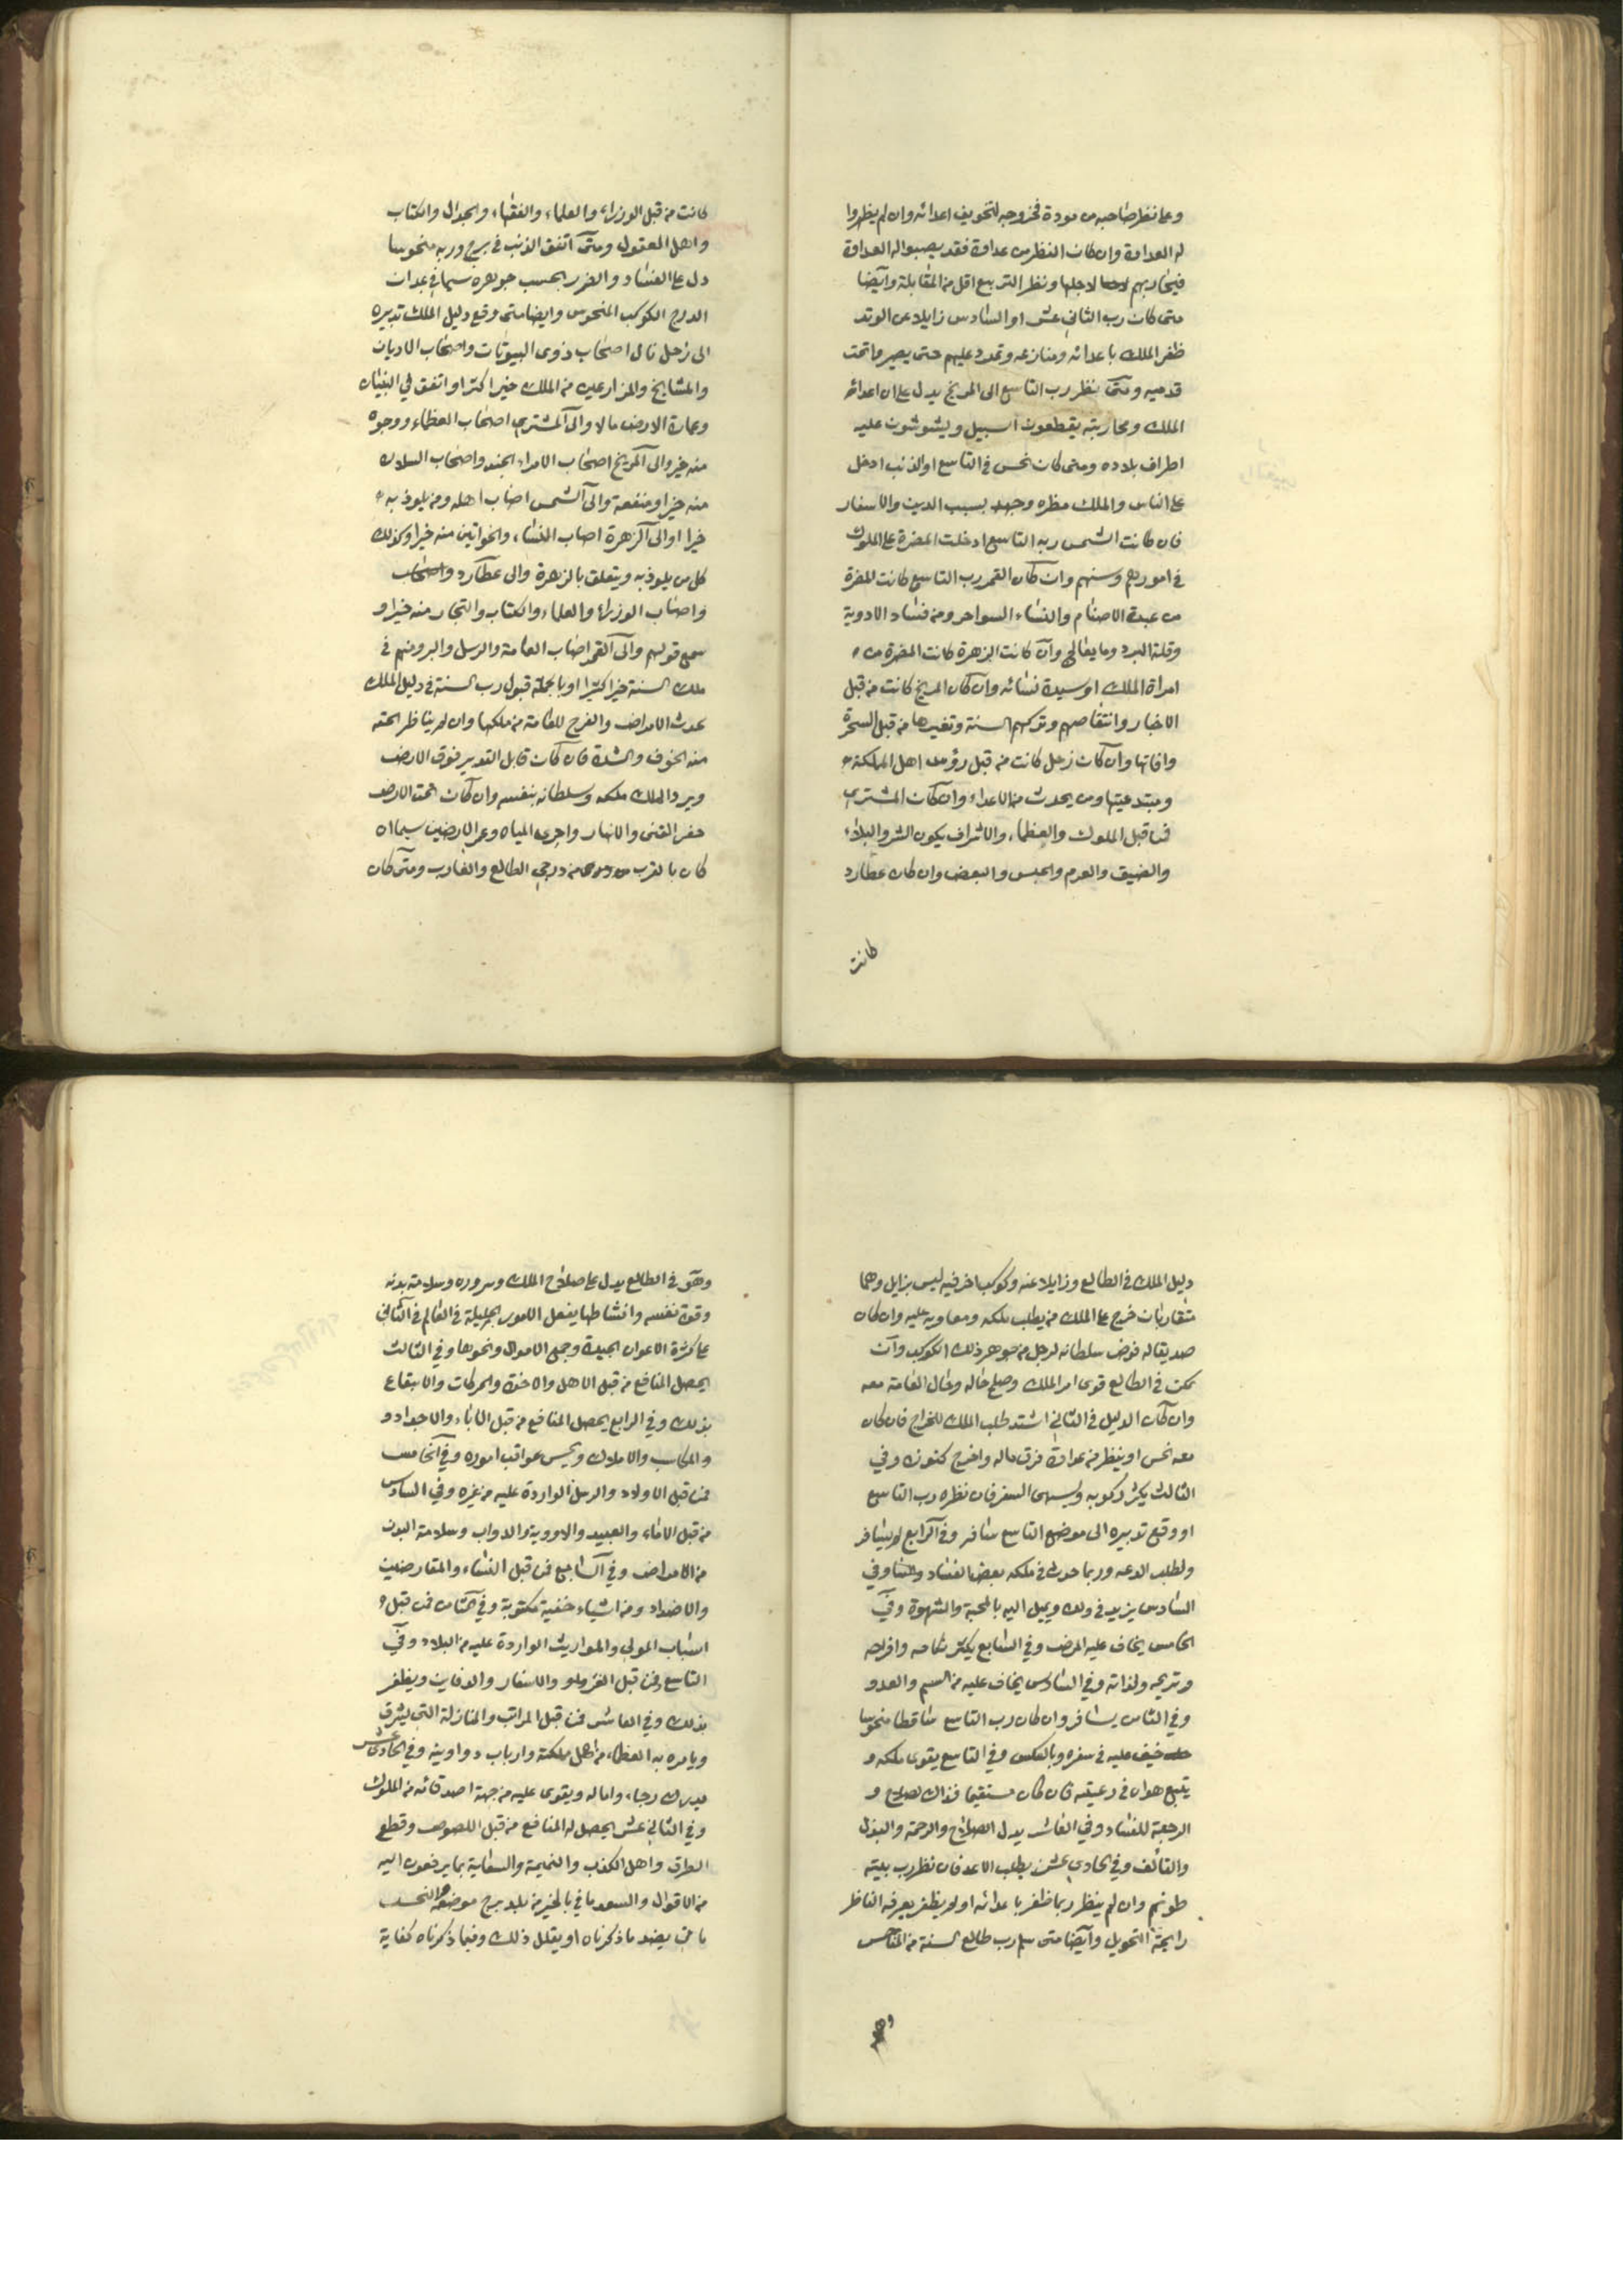 وعا نظر صاحبه من مودة فخروجه لتخويف اعدائه وان لم يظهروا
له العداوة وان كان النظر من عداوة فقد يصبوا له العداوة
فيحاربهم لاجلها ونظر التربيع اقل من المقابلة وايضا
متى كان رب الثاني عشر او السادس زايلا عن الوتد
ظفر الملك باعدائه ومنازعه وتمدد عليهم حتى يصيروا تحت
قدميه ومتى نظر رب التاسع الى المريخ يدل على ان اعدائه
الملك ومحاربته يقطعون السبيل ويشوشون عليه
اطراف بلاده ومتى كان نحس في التاسع او الذنب ادخل
على الناس والملك مضره وجهد بسبب الدين والاسفار
فان كانت الشمس ربه التاسع ادخلت المضرة على الملوك
في امورهم وسنهم وان كان القمر رب التاسع كانت المضرة
من عبدة الاصنام والنساء السواحر ومن فساد الادوية
وقلة البرد وما يعالج وان كانت الزهرة كانت المضرة من
امراة الملك او سيدة نسائه وان كان المريخ كانت من قبل
الاخبار وانتقاصهم وتركهم السنة وتغيرها من قبل السحرة
وافاتها وان كان زحل كانت من قبل رؤسا اهل المملكة
ومبتدعيتها ومن يحدث من الاعداء وان كان المشتري
فمن قبل الملوك والعظماء والاشراف يكون الشر والبلاء
والضيق والعدم والحبس والبعض وان كان عطارد
كانت
كانت من قبل الوزراء والعلماء والفقهاء والجدال والكتاب
واهل العقول ومتى اتفق الذنب في برج وربه منحوسا
دل على الفساد والضرر بحسب جوهره سيما في
الدرج الكوكب المنحوس وايضا متى وقع دليل الملك تدبيره
الى زحل نال اصحاب ذوى البيوتات واصحاب الاديان
والمشايخ والمزارعين من الملك خيرا كثيرا واتفق في البنيان
وعمارة الارض مالا والى المشتري اصحاب العظماء ووجوه
منه خير والى المريخ اصحاب الامراء الجند واصحاب السلاح
منه خيرا ومنفعة والى الشمس اصاب اهله ومن يلوذ به
خيرا او الى الزهرة اصاب النساء والخواتين منه خيرا وكذلك
كل من يلوذ به ويتعلق بالزهرة والى عطارد واصحاب
واصاب الوزراء والعلماء والكتاب والتجار منه خيرا و
سمع قولهم والى القمر اصاب العامة والرسل والبر ومنهم في
ملك السنة خيرا كثيرا او بالجملة قبول رب السنة في دليل الملك
يحدث الامراض والفرح للعامة من ملكها وان لم يناظر الحقه
منه الخوف والشدة فان كان قابل التدبير فوق الارض
وبرد الملك ملكه وسلطانه بنفسه وان كان تحت الارض
حفر القنى والانهار واجرى المياه وعمر الارضين سيما ان
كان بالقرب من درجي الطالع والغارب ومتى كان
دليل الملك في الطالع وزايلا عنه وكوكب اخر فيه ليس بزايل وهما
متقاربان خرج على الملك من يطلب ملكه ومعاوية عليه وان كان
صديقا له فوض سلطانه لرجل من جوهر ذلك الكوكب وان
تمكن في الطالع قوى امر الملك وصلح حاله وحال العامة معه
وان كان الدليل في الثاني اشتد طلب الملك للخراج فان كان
معه نحس او ينظر من عداوة فرق ماله واخرج كنوزه وفي
الثالث يكثر ركوبه ويشتهى السفر فان نظره رب التاسع
او وقع تدبيره الى موضع التاسع سافر وفي الرابع لم يسافر
ولطلب الدعه وربما حدث في ملكه بعض الفساد وفي
السادس يزيد في ولده ويميل اليه بالمحبة والشهوة وفي
الخامس يخاف عليه المرض وفي السابع يكثر نكاحه وافراحه
وتزيجه ولذاته وفي السادس يخاف عليه من السم والعدو
وفي الثامن يسافر وان كان رب التاسع ساقطا منحوسا
خيف عليه في سفره وبالعكس وفي التاسع يقوى ملكه و
يتبع هواه في رعيته فان كان مستقيما فذاك لصلاح و
الرجعة للفساد وفي العاشر يدل الصلاح والرحمة والبذل
والتألف وفي الحادي عشر يطلب الاعد فان نظر رب بيته
طونهم وان لم ينظر ربما ظفر باعدائه او لم يظفر يعرفه الناظر
رايجة التحويل وايضا متى سلم رب طالع السنة من المناحس
وهو
وهو في الطالع يدل على صلاح الملك وسروره وسلامة بدنه
وقوة نفسه وانشاطها يفعل الامور الجليلة في العالم في الثاني
على كثرة الاعوان الجيدة وجمع الاموال ونحوها وفي الثالث
يحصل المنافع من قبل الاهل والاخوة والحركات والانتفاع
بذلك وفي الرابع يحصل المنافع من قبل الاباء والاجداد و
والمكاسب والاملاك ويحسن عواقب اموره وفي الخامس
فمن قبل الاولاد والرسل الواردة عليه من غيره وفي السادس
من قبل الاماء والعبيد والادوية والدواب وسلامة البدن
من الامراض وفي السابع فمن قبل النساء والمقارضين
والاضداد ومن اشياء خفية مكتوبة وفي الثامن فمن قبل
اسباب الموتى والمواريث الواردة عليه من البلاد وفي
التاسع فمن قبل الغزو والاسفار والدفاين ويظفر
بذلك وفي العاشر فمن قبل المراتب والمنازلة التي يشرف
ويامره به العظماء من اهل مملكته وارباب دواوينه وفي الحادى عشر
يدرك رجاء واماله ويقوى عليه من جهة اصدقائه من الملوك
وفي الثاني عشر يحصل له المنافع من قبل اللصوص وقطع
الطرق واهل الكذب والنميمة والسعاية بما يرفعون اليه
من الاقوال والسعد يا في بالخير من بلد برج موضعه والنحس
يا في بضد ما ذكرناه او يقلل ذلك وفيما ذكرناه كفاية